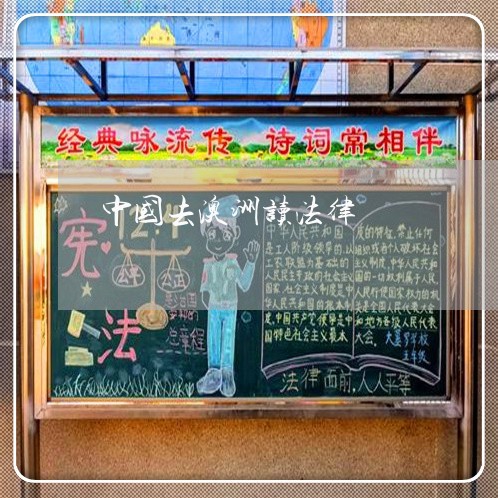 经典咏流传 诗词常相伴
中国去澳洲讀法律
宪
法
公平
公正
总章程
中华人民共和国
是工人阶级领导的,以
工农联盟为基础的
人民民主专政的社会主义
国家,社会主义制度是中
华人民共和国的根本制
度,中国共产党领导是中
国特色社会主义最本
质的特征,禁止任何
组织或者个人破坏社会
主义制度,中华人民共和
国的一切权利属于人民,
人民行使国家权力的机
关是全国人民代表大会
和地方各级人民代表
大会。
学校
五年级
法律面前,人人平等